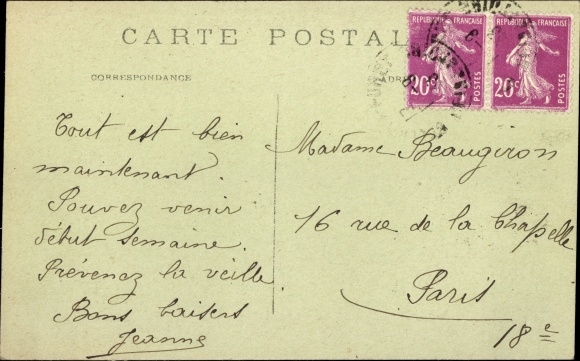 CARTE POSTALE
CORRESPONDANCE
REPUBLIQUE FRANÇAISE
20c
REPUBLIQUE FRANÇAISE
20c
Tout est bien
maintenant.
Pouvez venir
début semaine.
Prévenez la veille
Bons baisers
Jeanne
Madame Beaugiron
16 rue de la Chapelle
Paris
18e